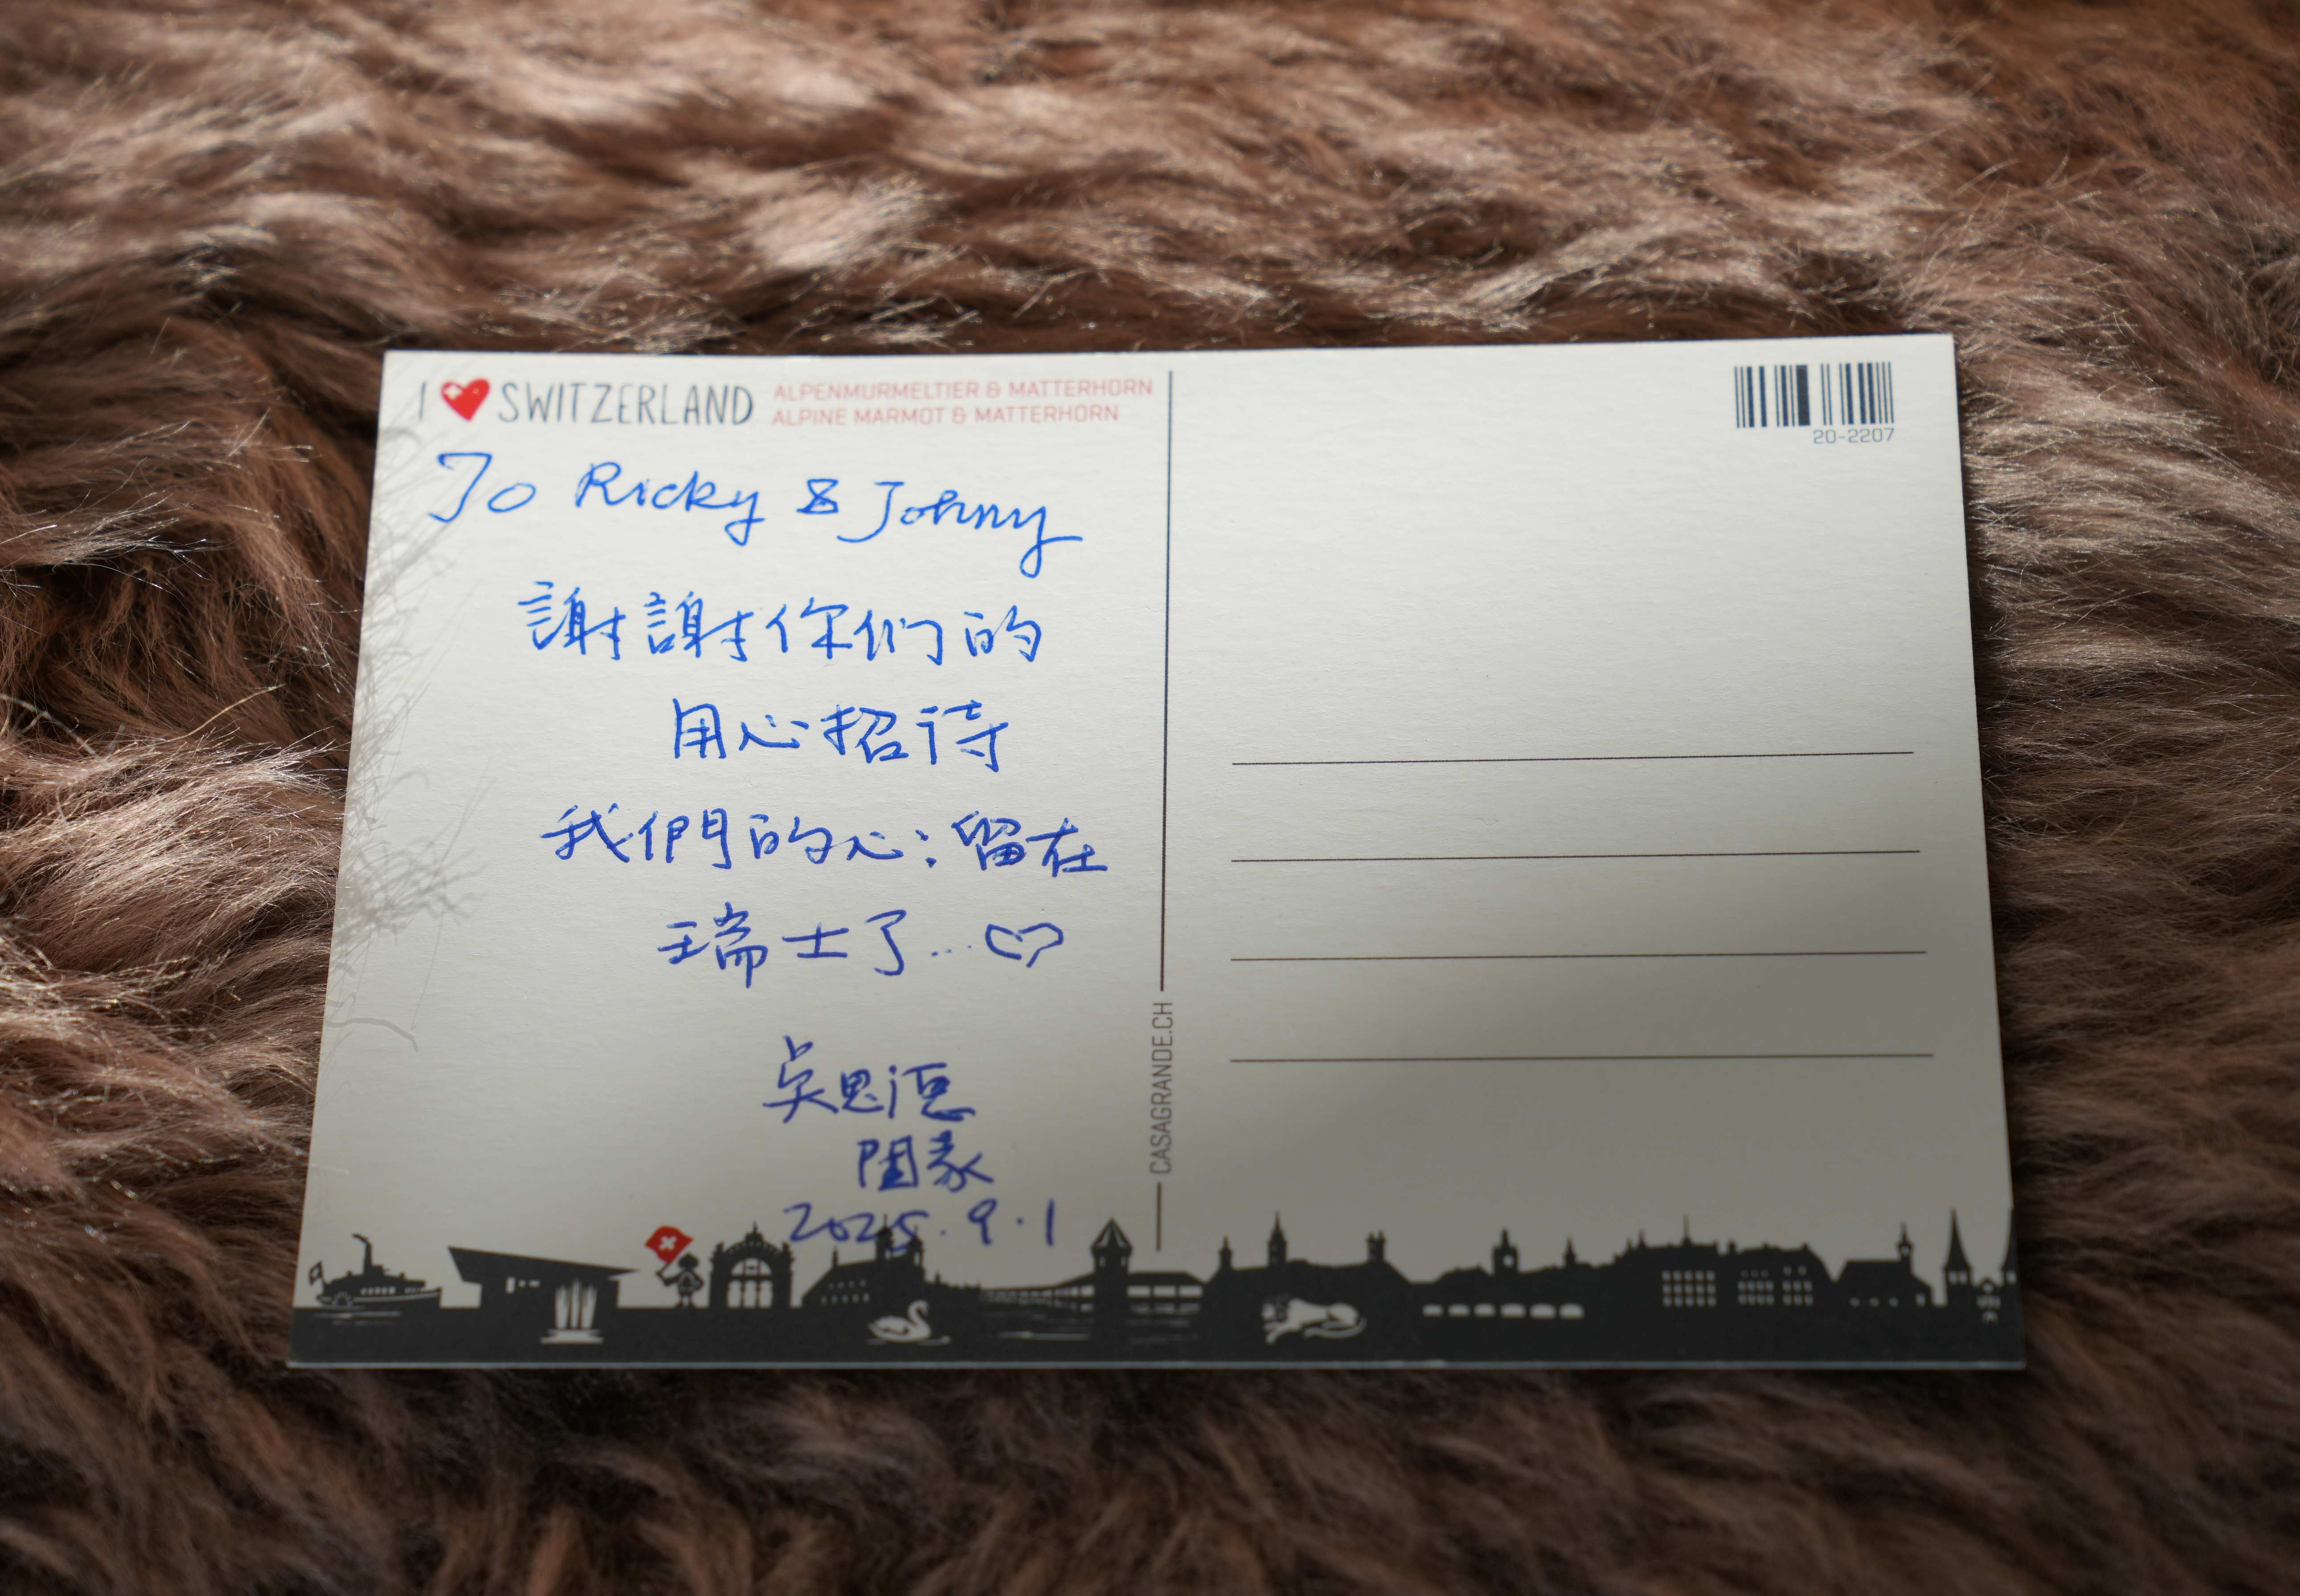 I ♥ SWITZERLAND
ALPENMURMELTIER & MATTERHORN
ALPINE MARMOT & MATTERHORN
20-2207
To Ricky & Johny
謝謝你们的
用心招待
我們的心:留在
瑞士了... ♡
吴思
闔家
2025.9.1
CASAGRANDE.CH